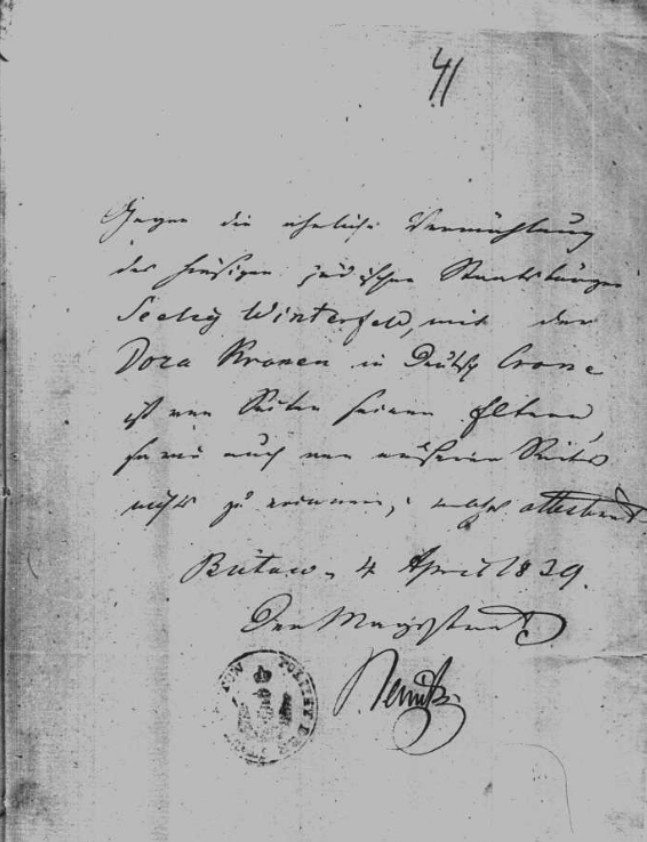 41
Gegen die eheliche Vermählung
des hiesigen jüdischen Staatsbürger
Seelig Winterfeld, mit der
Dora Kronen in Deutsch Crone
ist von Seiten seinen Eltern,
so wie auch von unserer Seits
nichts zu erinnern, welches attestirt.
Bütow, 4 April 1839.
Der Magistrat
POLIZEI